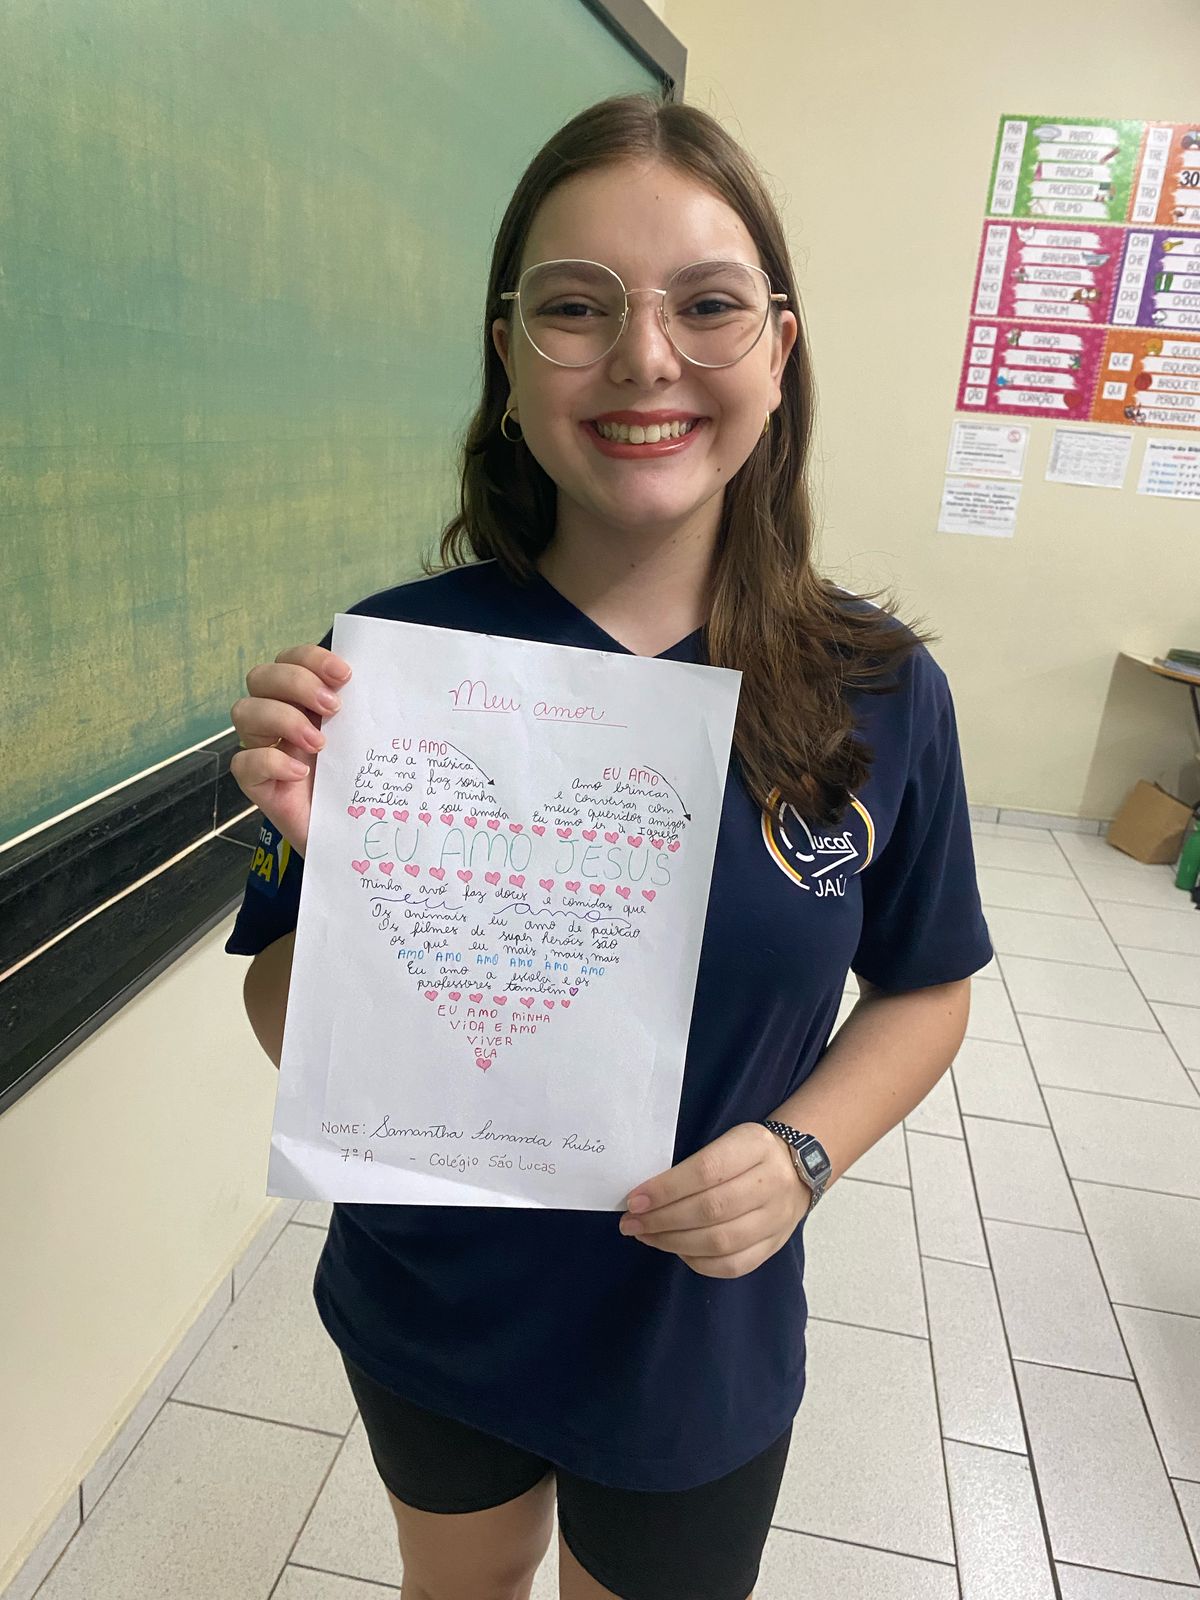 Meu amor
EU AMO
Amo a música
ela me faz sorir
Eu amo a minha
família e sou amada
EU AMO
Amo brincar
e conversar com
meus queridos amigos
Eu amo ir à Igreja
EU AMO JESUS
Minha avó faz doces e comidas que
eu amo
Os animais eu amo de paixão
Os filmes de super heróis são
os que eu mais, mais, mais
AMO AMO AMO AMO AMO AMO
Eu amo a escola e os
professores também
EU AMO MINHA
VIDA E AMO
VIVER
ELA
NOME: Samantha Fernanda Rubio
7º A - Colégio São Lucas
Lucas
JAÚ
PRA
PRE
PRI
PRO
PRU
PRATO
PREGADOR
PRINCESA
PROFESSOR
PRUMO
TRA
TRE
TRI
TRO
TRU
30
NHA
NHE
NHI
NHO
NHU
GALINHA
BANHEIRA
DESENHISTA
NINHO
NENHUM
CHA
CHE
CHI
CHO
CHU
ÇA
ÇO
ÇU
ÇÃO
DANÇA
PALHAÇO
AÇÚCAR
CORAÇÃO
QUE
QUI
QUEIJO
ESQUERDA
BASQUETE
PERIQUITO
MAQUIAGEM